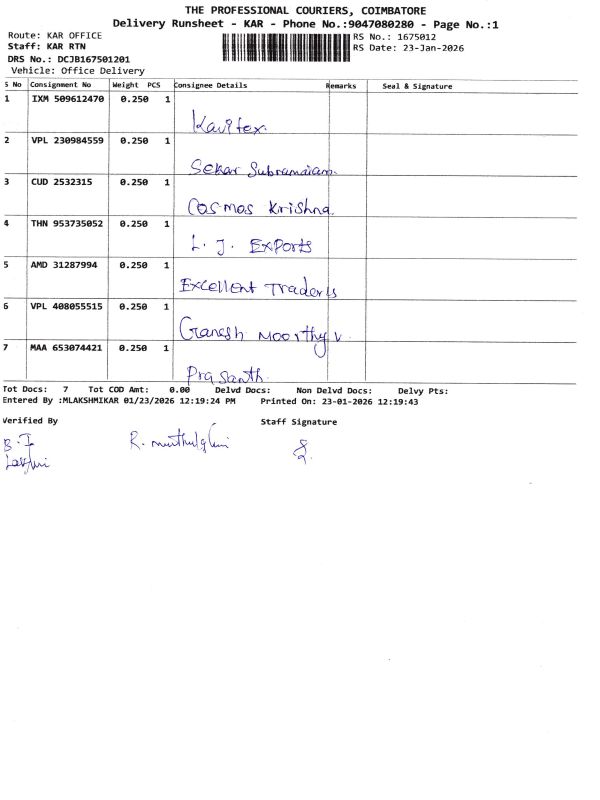 THE PROFESSIONAL COURIERS, COIMBATORE
Delivery Runsheet - KAR - Phone No.:9047080280 - Page No.:1
Route: KAR OFFICE RS No.: 1675012
Staff: KAR RTN RS Date: 23-Jan-2026
DRS No.: DCJB167501201
Vehicle: Office Delivery
S No Consignment No Weight PCS Consignee Details Remarks Seal & Signature
1 IXM 509612470 0.250 1 Kavitex.
2 VPL 230984559 0.250 1 Sekar Subramaiam.
3 CUD 2532315 0.250 1 Cosmos Krishna
4 THN 953735052 0.250 1 L. J. Exports
5 AMD 31287994 0.250 1 Excellent Traders
6 VPL 408055515 0.250 1 Ganesh Moorthy V
7 MAA 653074421 0.250 1 Prasanth.
Tot Docs: 7 Tot COD Amt: 0.00 Delvd Docs: Non Delvd Docs: Delvy Pts:
Entered By :MLAKSHMIKAR 01/23/2026 12:19:24 PM Printed On: 23-01-2026 12:19:43
Verified By Staff Signature
B. I R.